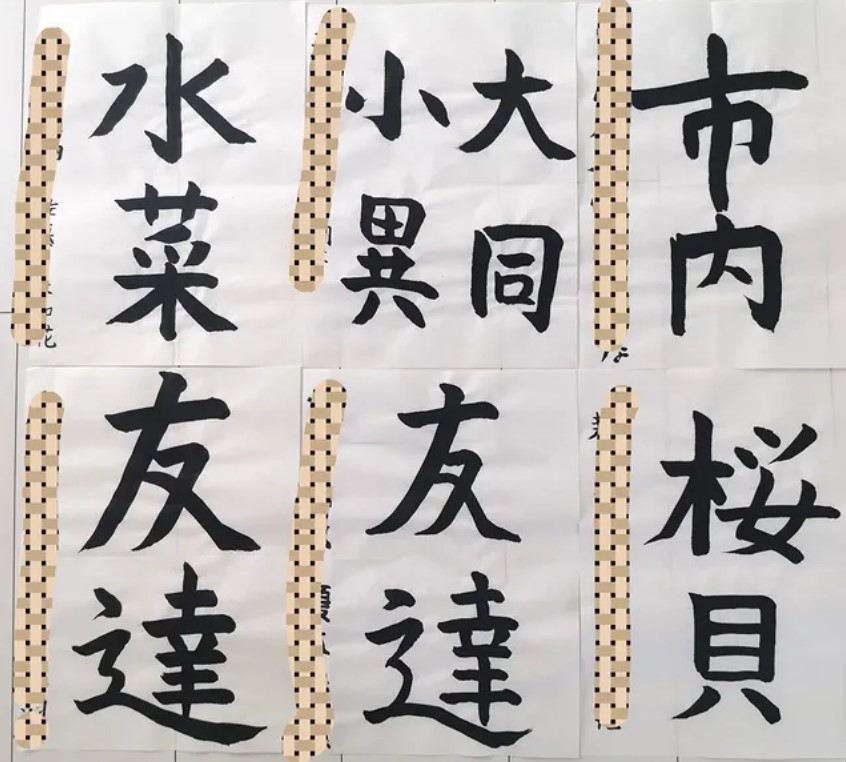 水菜
大同
小異
市内
友達
友達
桜貝